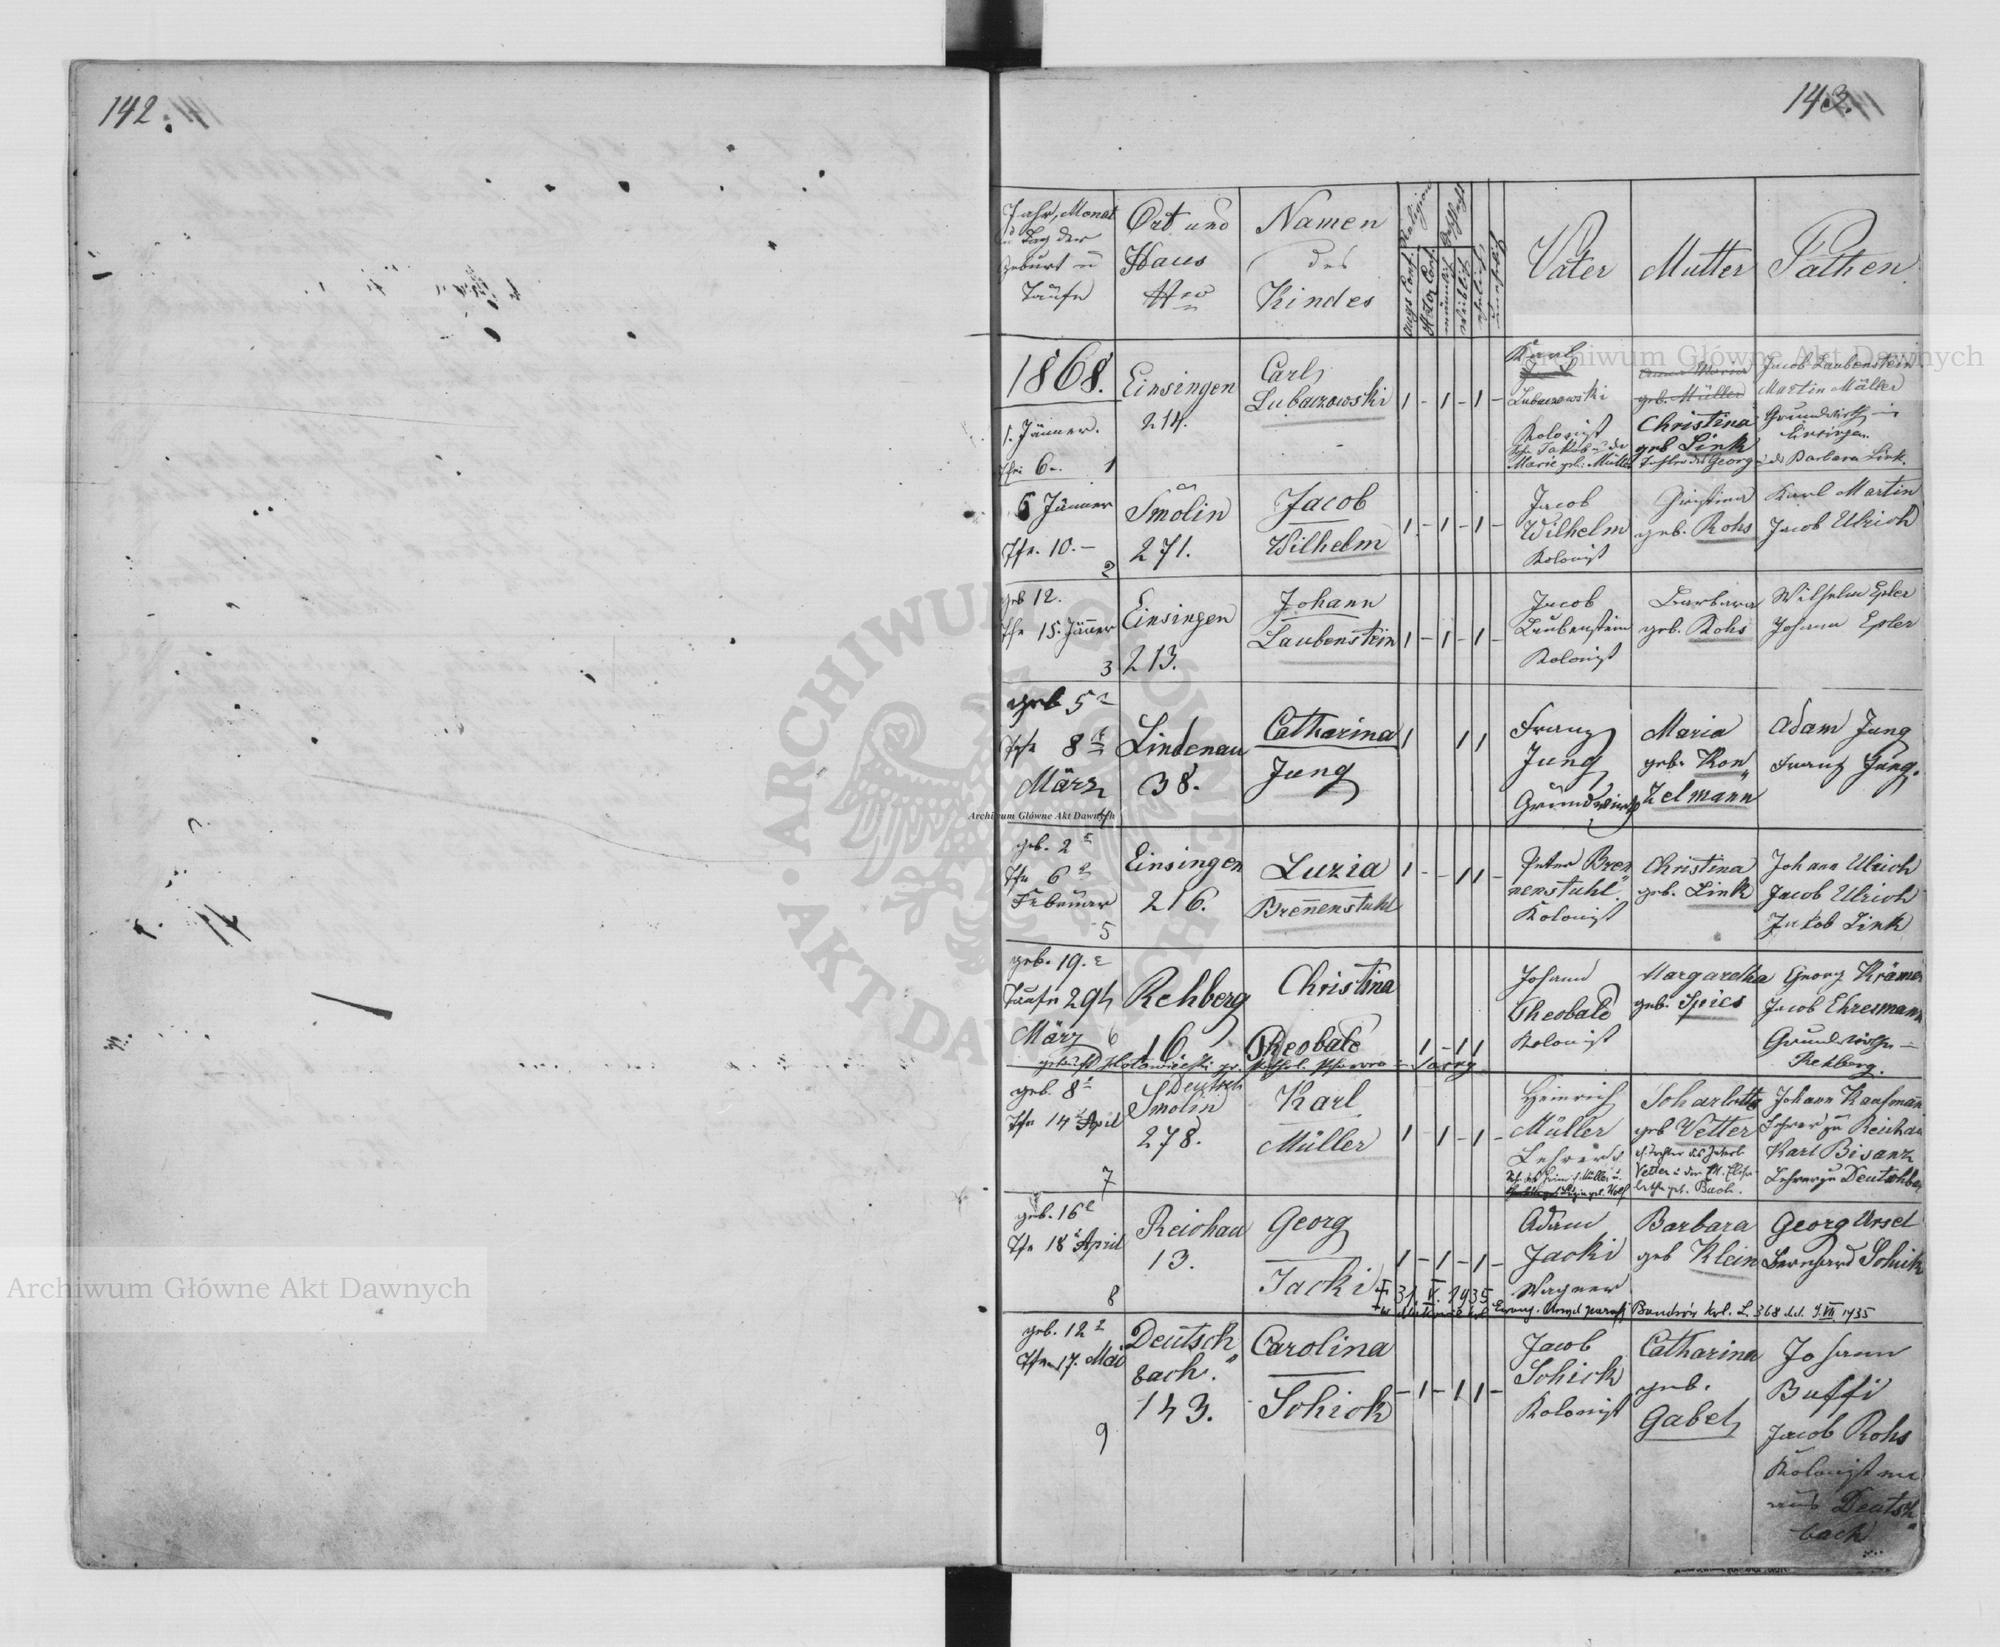 142.
143.
Jahr, Monat
u Tag der
Geburt u
Taufe
Ort und
Haus
Nro
Namen
des
Kindes
Religion
Augs Conf.
Helv Conf.
männlich
weiblich
ehelich
unehelich
Vater
Mutter
Pathen
1868.
1. Jänner.
Tfe 6.
1
Einsingen
214.
Carl
Lubaczowski
1 - 1 - 1 -
Karl
Lubaczowski
Kolonist
Marie geb. Müller
Anna Maria
geb. Müller
Christina
geb Link
Tochter des Georg
Jacob Laubenstein
Martin Müller
Grundwirth in
Einsingen
u der Barbara Link.
6 Jänner
Tfe. 10. –
2
Smolin
271.
Jacob
Wilhelm
1 - 1 - 1 -
Jacob
Wilhelm
Kolonist
Christina
geb. Rohs
Karl Martin
Jacob Ulrich
geb 12.
Tfe 15. Jänner
3
Einsingen
213.
Johann
Laubenstein
1 - 1 - 1 -
Jacob
Laubenstein
Kolonist
Barbara
geb. Rohs
Wilhelm Epler
Johann Epler
geb 5
Tfe 8
März
4
Lindenau
38.
Catharina
Jung
1 1 1
Franz
Jung
Grundwirth
Maria
geb. Kon„
zelmann
Adam Jung
Franz Jung.
geb. 2
Tfe 6
Februar
5
Einsingen
216.
Luzia
Breñenstuhl
1 - - 1 1 -
Peter Bren„
nenstuhl.
Kolonist
Christina
geb. Link
Johann Ulrich
Jacob Ulrich
Jakob Link
geb. 19.
Taufe 29
März 6
Rehberg
16
Christina
Theobald
1 - 1 1
Johann
Theobald
Kolonist
Margaretha
geb. Spies
Georg Krämer
Jacob Ehresmann
Grundwirthe in
Rehberg.
geb. 8
Tfe 14 April
7
Deutsch
Smolin
278.
Karl
Müller
1 - 1 - 1 -
Heinrich
Müller
Lehrer
Scharlotta
geb Vetter
Johann Kaufmann
Lehrer zu Reichau
Karl Bisanz
Lehrer zu Deutschbach
geb. 16
Tfe 18 April
8
Reichau
13.
Georg
Jacki
1 - 1 - 1 -
Adam
Jacki
Wagner
Barbara
geb Klein
Georg Ursel
Bernhard Schick
+ 31. V. 1935
Bandrów L. 368 dd. 9.VII 1935
geb. 12
Tfe 17. Mai
9
Deutsch„
bach.
143.
Carolina
Schick
- 1 - 1 1 -
Jacob
Schick
Kolonist
Catharina
geb.
Gabel
Johann
Buffi
Jacob Rohs
Kolonisten
aus Deutsch„
bach
Archiwum Główne Akt Dawnych
Archiwum Główne Akt Dawnych
Archiwum Główne Akt Dawnych
ARCHIWUM GŁÓWNE AKT DAWNYCH